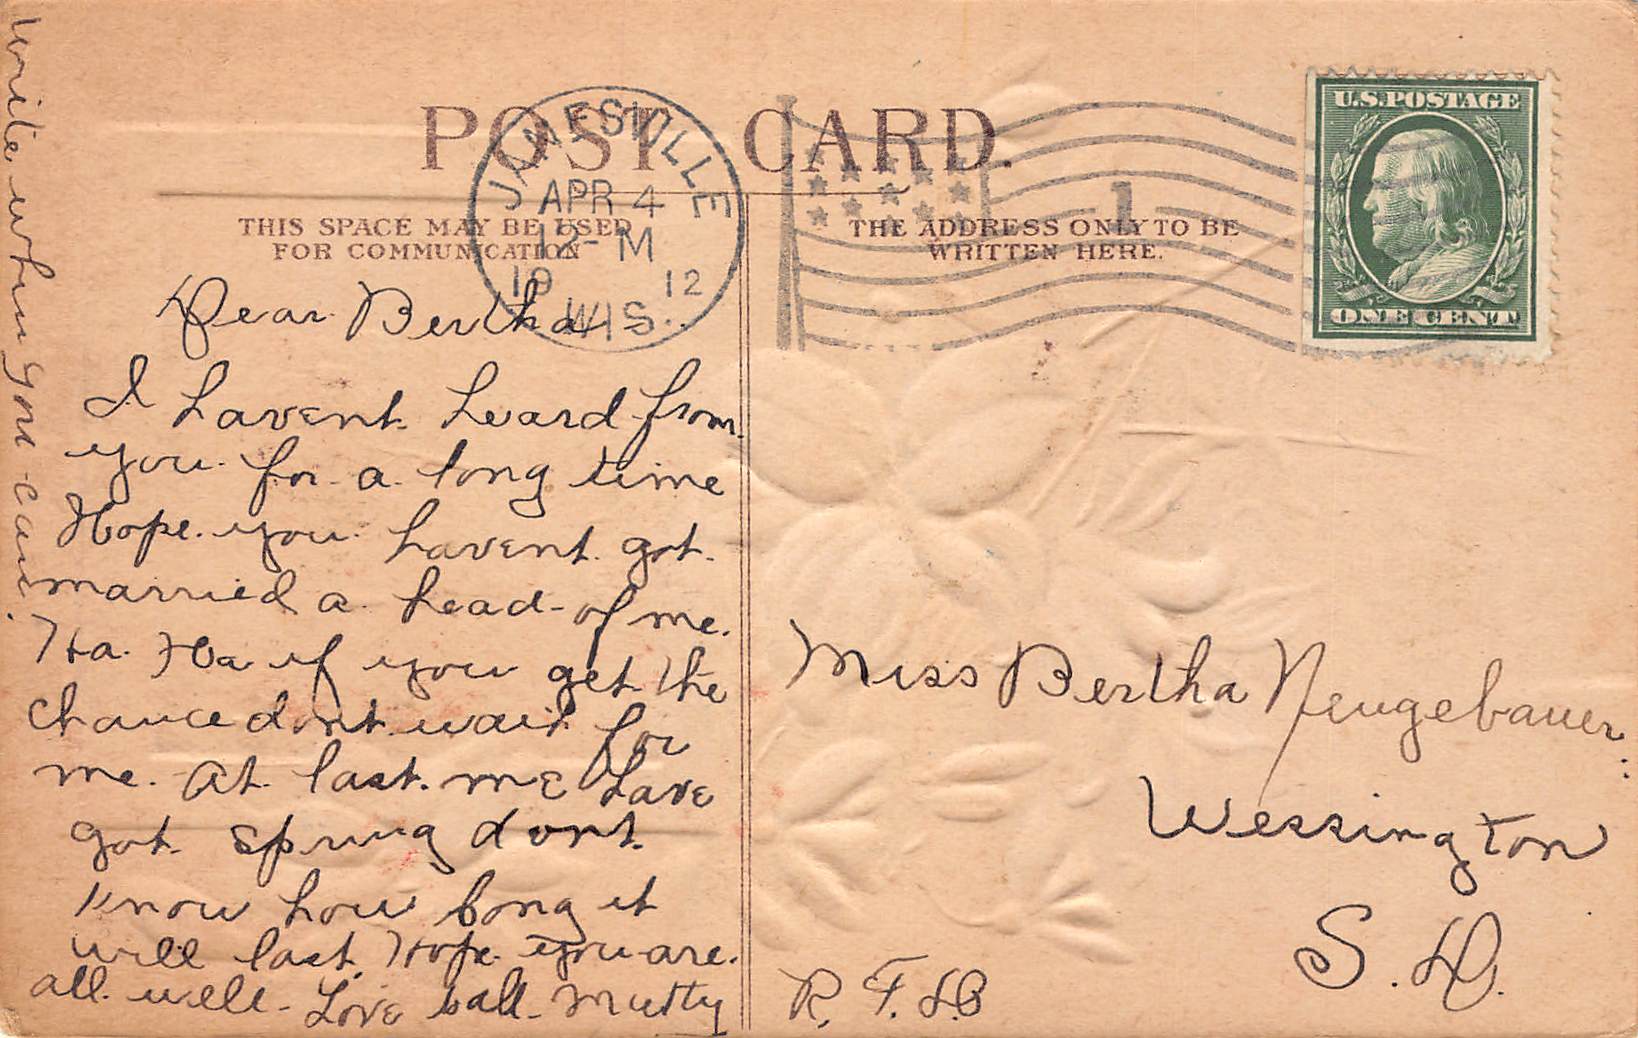 POST CARD.
JANESVILLE
APR 4
12-M
19 12
WIS.
1
U.S. POSTAGE
ONE CENT
THIS SPACE MAY BE USED
FOR COMMUNICATION
THE ADDRESS ONLY TO BE
WRITTEN HERE.
Dear Bertha
I havent heard from
you for a long time
Hope you havent got
married a head of me.
Ha. Ha if you get the
chance dont wait for
me. At last we have
got spring dont
know how long it
will last. Hope you are
all well. Love to all
write when you can.
Miss Bertha Neugebauer
Wessington
S. D.
R. F. D.